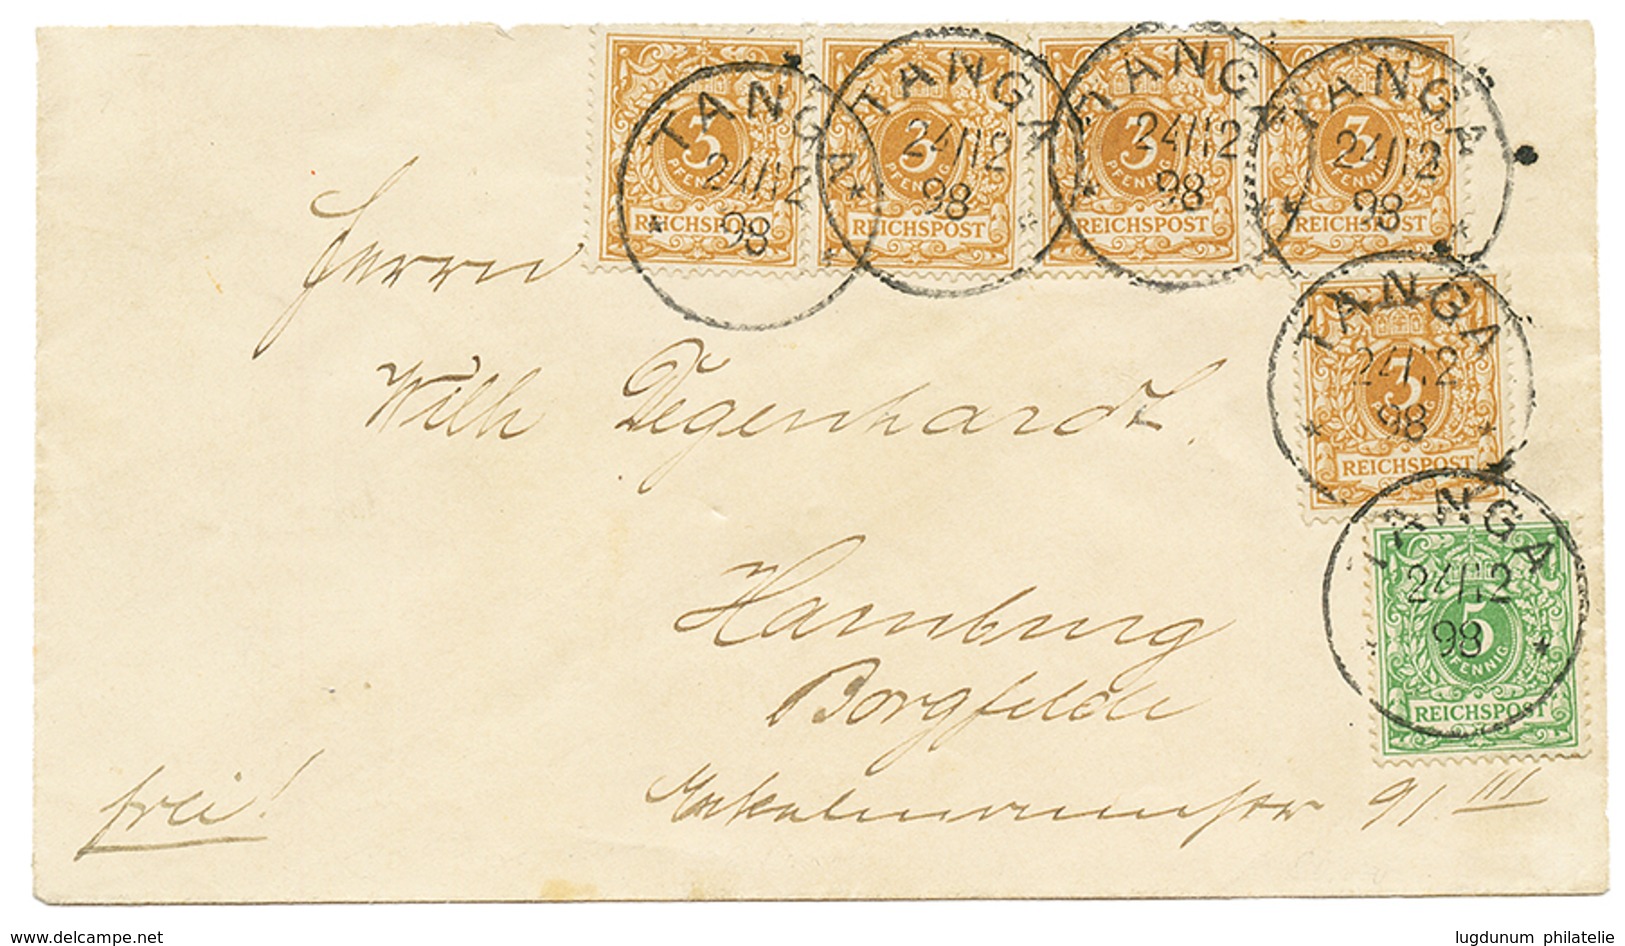 TANGA 24/12 98
TANGA 24/12 98
TANGA 24/12 98
TANGA 24/12 98
3 PFENNIG REICHSPOST
3 PFENNIG REICHSPOST
3 PFENNIG REICHSPOST
3 PFENNIG REICHSPOST
Herrn
TANGA 24/12 98
3 PFENNIG REICHSPOST
Wilh Degenhardt.
TANGA 24/12 98
5 PFENNIG REICHSPOST
Hamburg
Borgfelde
frei!
91 III
www.delcampe.net
lugdunum philatelie